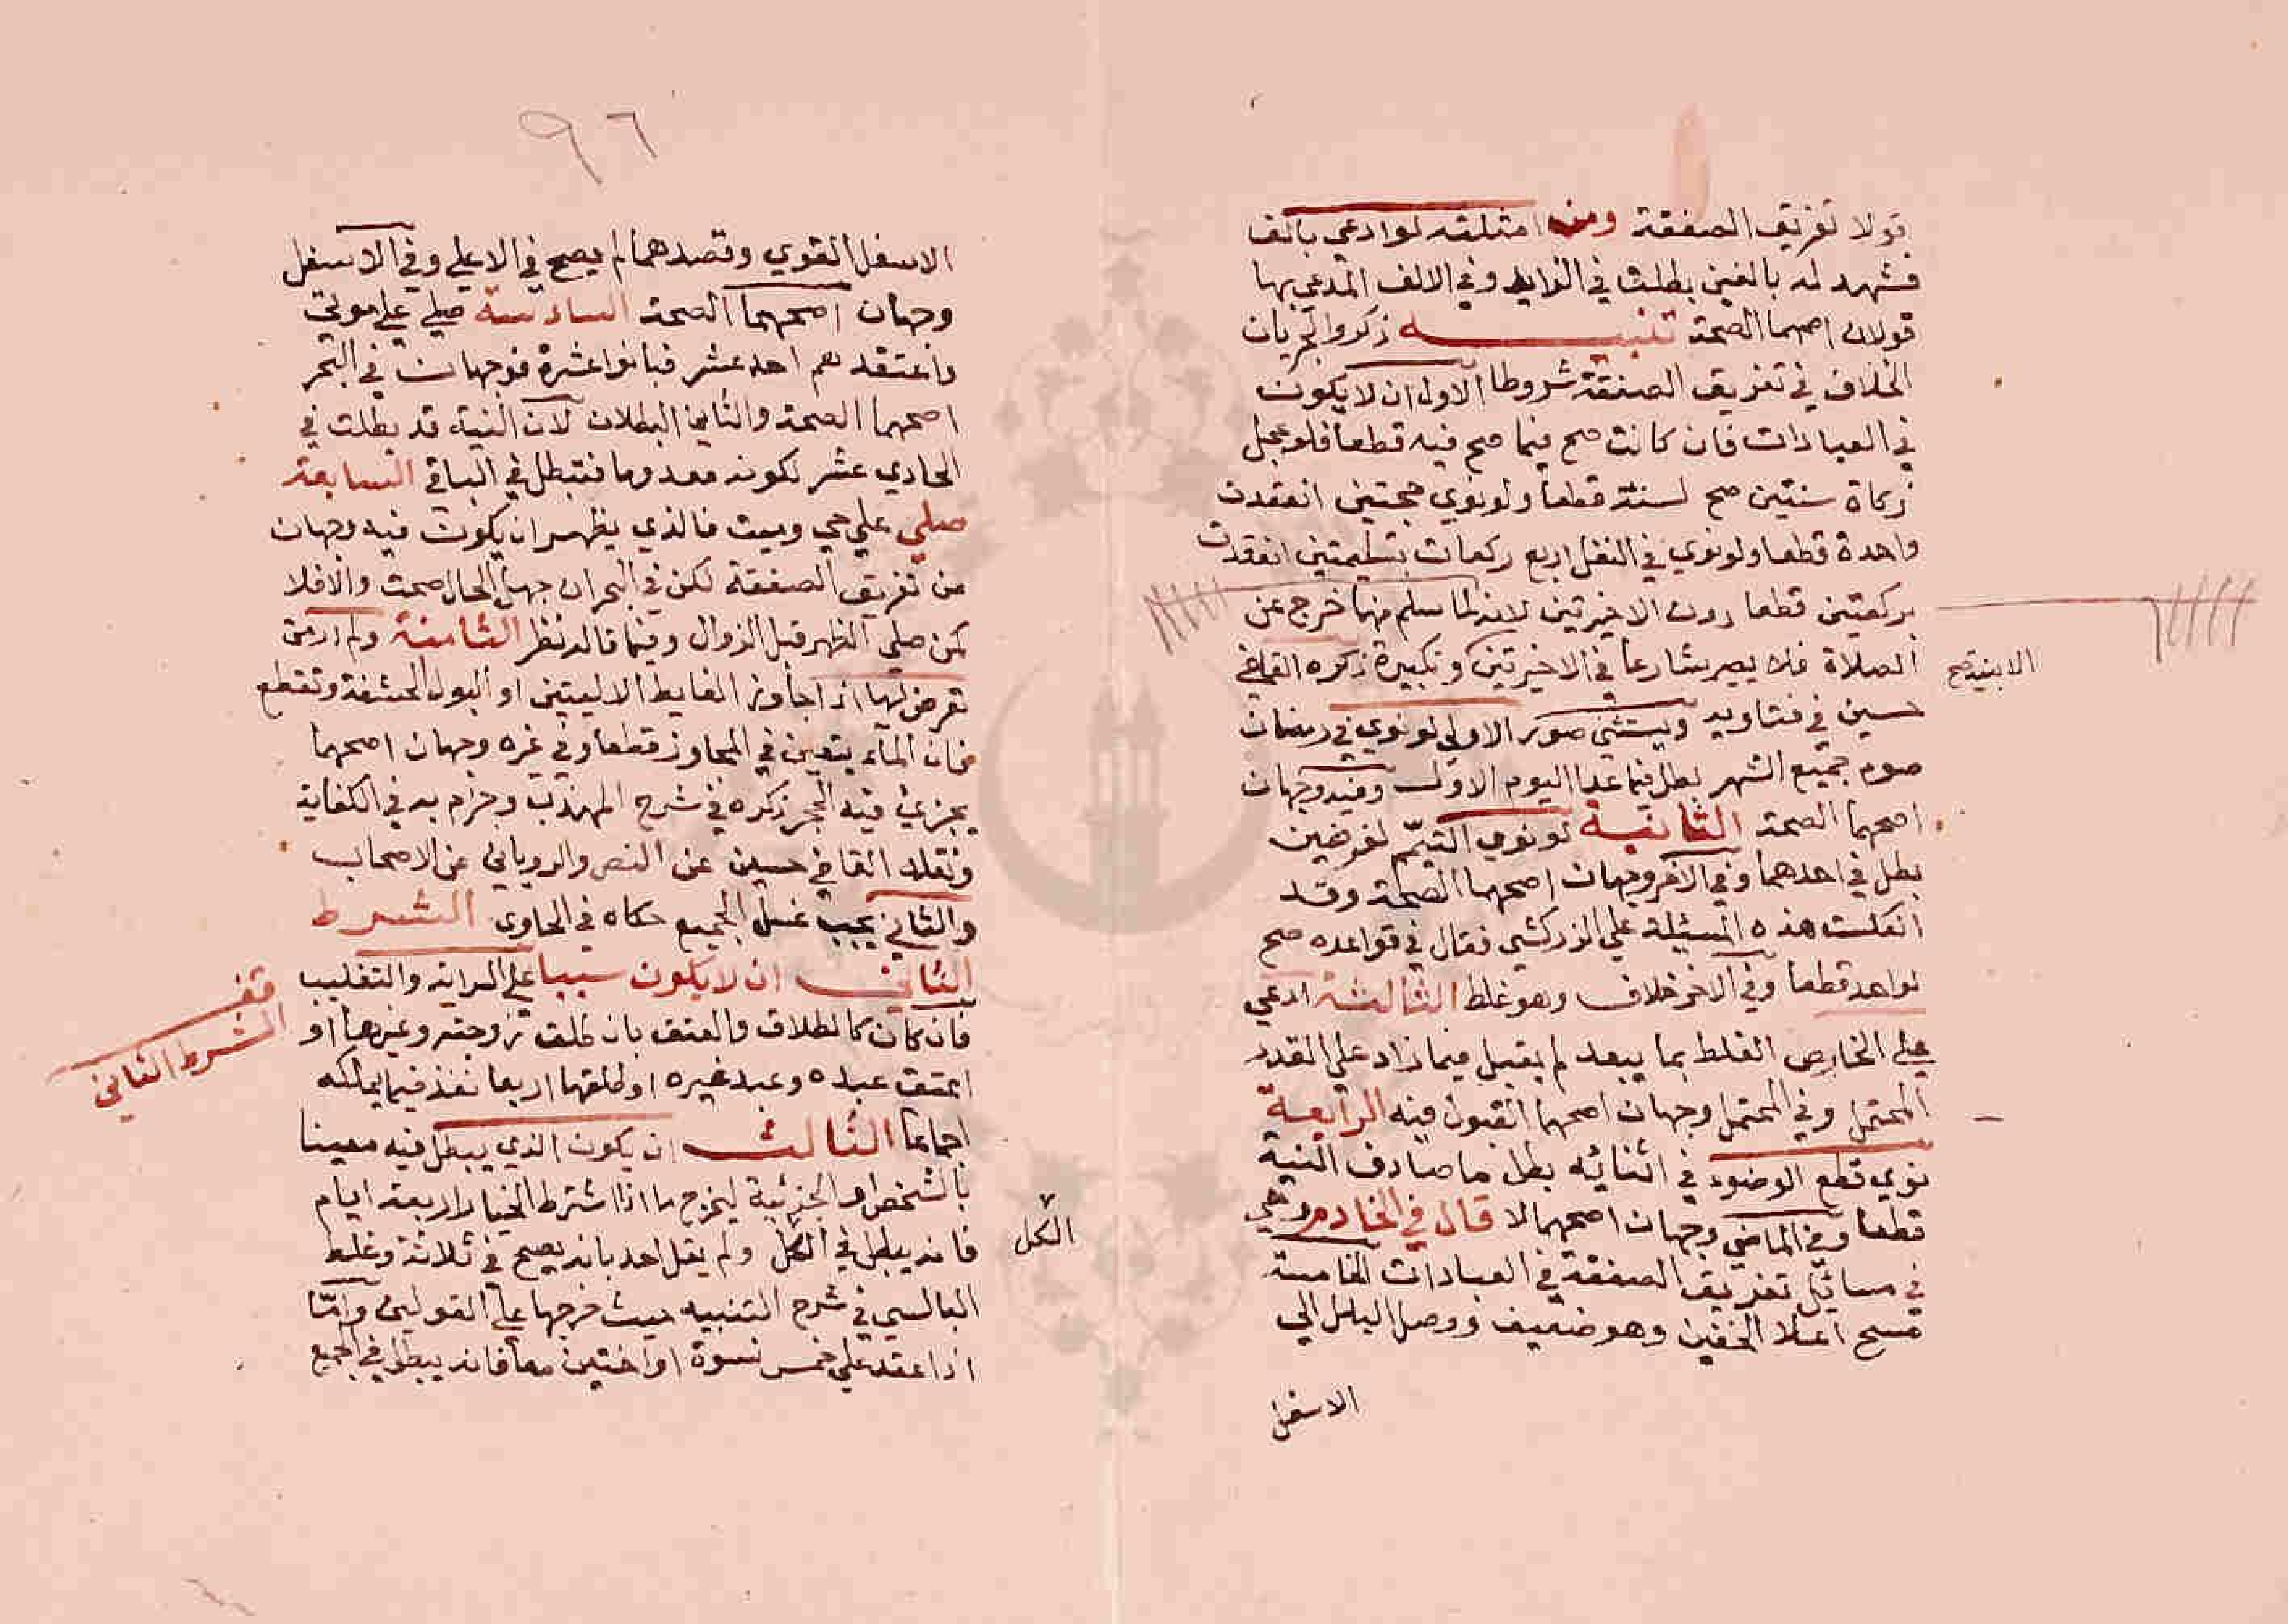 قولا تفريق الصفقة ومن امثلته لوادعي بالف
فشهد له بالفين بطلت في الزايد وفي الالف المدعي بها
قولان اصحهما الصحة تنبيه ذكروا لجريان
الخلاف في تفريق الصفقة شروطا الاول ان لا يكون
في العبادات فان كانت صح فيما صح فيه قطعا فلو عجل
زكاة سنتين صح لسنة قطعا ولو نوي حجتين انعقدت
واحدة قطعا ولو نوي في النفل اربع ركعات بتسليمتين انعقدت
بركعتين قطعا دون الاخيرتين لانه لما سلم منها خرج عن
الصلاة فلا يصير شارعا في الاخيرتين وتكبيرة ذكره القاضي
حسين في فتاويه ويستثني صور الاولي لو نوي في رمضان
صوم جميع الشهر بطل فيما عدا اليوم الاول وفيه وجهان
اصحهما الصحة الثانية لو نوي التيمم لفرضين
بطل في احدهما وفي الاخر وجهان اصحهما الصحة وقد
انعكست هذه المسئلة علي الزركشي فقال في قواعده صح
لواحد قطعا وفي الاخر خلاف وهو غلط الثالثة ادعي
علي الخارص الغلط بما يبعد لم يقبل فيما زاد علي القدر
المحتمل وفي المحتمل وجهان اصحهما القبول فيه الرابعة
نوي قطع الوضوء في اثنائه بطل ما صادف النية
قطعا وفي الماضي وجهان اصحهما لا قال في الخادم وهي
في مسائل تفريق الصفقة في العبادات الخامسة
مسح اعلا الخفين وهو ضعيف ووصل البلل الي
الاسفل
٩٦
الاسفل القوي وقصدهما لم يصح في الاعلي وفي الاسفل
وجهان اصحهما الصحة السادسة صلي علي موتي
واعتقدهم احد عشر فبانوا عشرة فوجهان في البحر
اصحهما الصحة والثاني البطلان لان النية قد بطلت في
الحادي عشر لكونه معدوما فتبطل في الباقي السابعة
صلي علي حي وميت فالذي يظهر ان يكون فيه وجهان
من تفريق الصفقة لكن في البحر ان جهل الحال صحت والا فلا
كمن صلي الظهر قبل الزوال وفيما قاله نظر الثامنة ولم ار من
تعرض لها اذا جاوز الغايط الاليتين او البول الحشفة وتقطع
فان الماء يتعين في المجاوز قطعا وفي غيره وجهان اصحهما
يجزي فيه الحجر ذكره في شرح المهذب وجزم به في الكفاية
ونقله القاضي حسين عن النص والروياني عن الاصحاب
والثاني يجب غسل الجميع حكاه في الحاوي الشرط
الثاني ان لا يكون مبنيا علي السراية والتغليب
فان كان كالطلاق والعتق بان طلق زوجته وغيرها او
اعتق عبده وعبد غيره او طلقها اربعا نفذ فيما يملكه
اجماعا الثالث ان يكون الذي يبطل فيه معينا
بالشخص او الجزئية ليخرج ما اذا اشترط الخيار اربعة ايام
فانه يبطل في الكل ولم يقل احد بانه يصح في ثلاثة وغلط
البالسي في شرح التنبيه حيث خرجها علي القولين واما
اذا عقد علي خمس نسوة او اختين معا فانه يبطل في الجميع
قف
الشرط الثاني
الكل